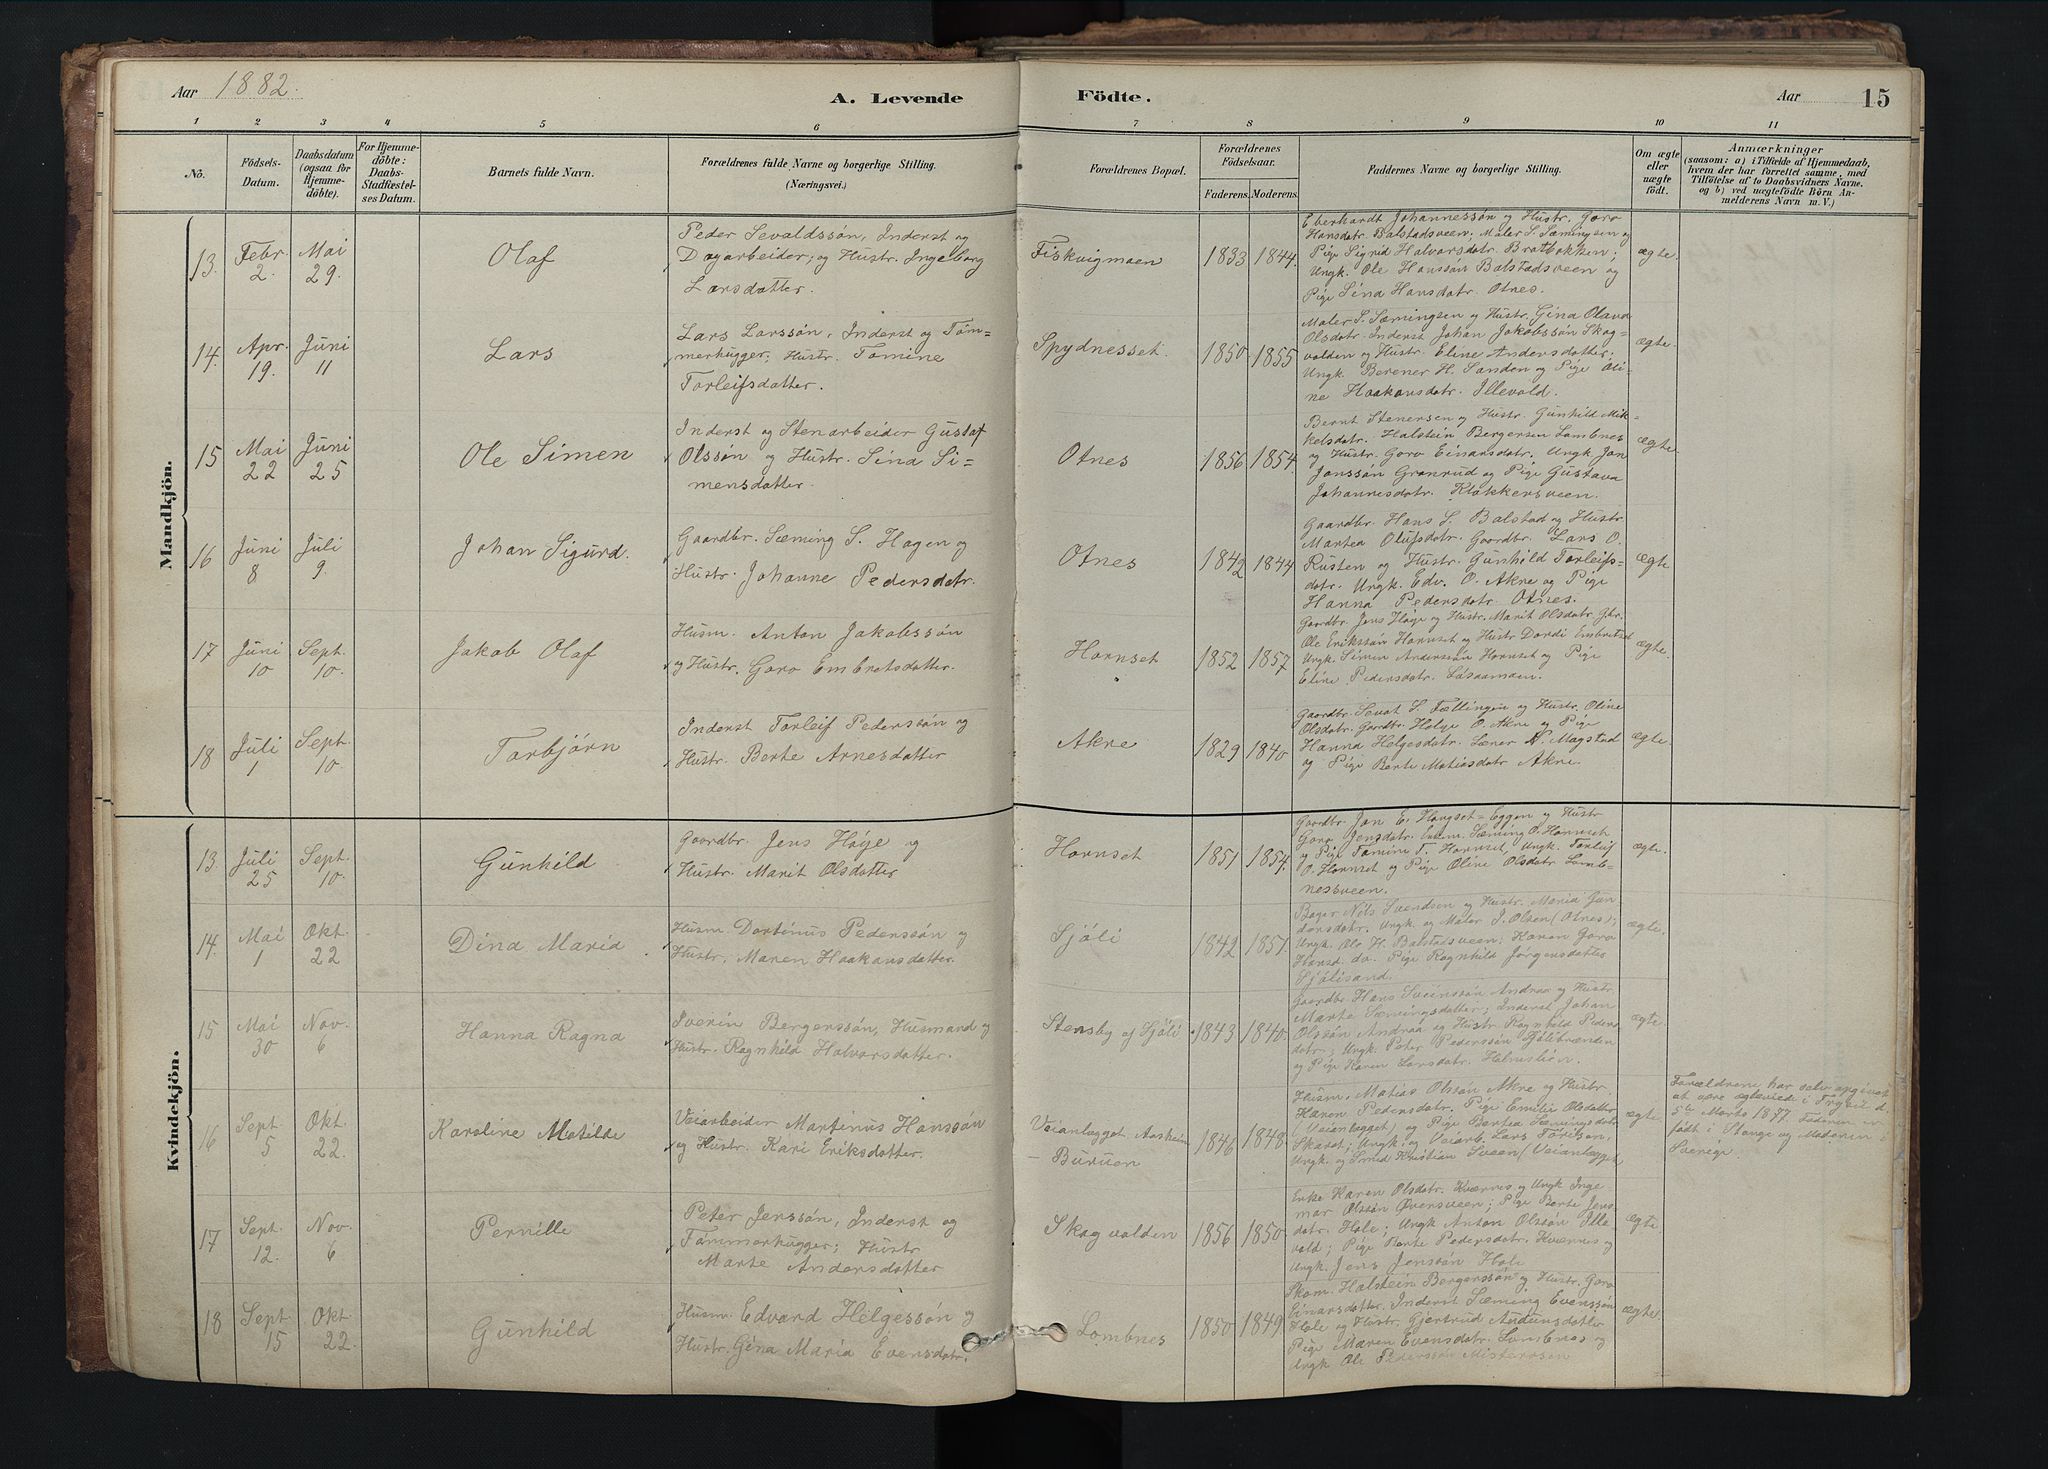 Aar 1882.
A. Levende
Födte.
Aar
15
1 2 3 4 5 6 7 8 9 10 11
No.
Födsels-
Datum.
Daabsdatum
(ogsaa for
Hjemme-
döbte).
For Hjemme-
döbte:
Daabs-
Stadfæstel-
ses Datum.
Barnets fulde Navn.
Forældrenes fulde Navne og borgerlige Stilling.
(Næringsvei.)
Forældrenes Bopæl.
Forældrenes
Födselsaar.
Faderens. Moderens.
Faddernes Navne og borgerlige Stilling.
Om ægte
eller
uægte
födt.
Anmærkninger
(saasom: a) i Tilfælde af Hjemmedaab,
hvem der har forrettet samme, med
Tilföielse af to Daabsvidners Navne,
og b) ved uægtefödte Börn An-
melderens Navn m. V.)
Mandkjön.
13. Febr. 2. Mai 29. Olaf
Peder Sevaldssön, Inderst og
Dagarbeider, og Hustr. Ingeborg
Larsdatter.
Fiskvigmoen 1833 1844.
Eberhardt Johannessön og Hustr. Goro
Hansdatr. Balstadsveen. Maler S. Sæmingsen og
Pige Sigrid Halvorsdatr. Bratbakken;
Ungk. Ole Hanssön Balstadsveen og
Pige Sina Hansdatr. Otnes.
ægte.
14. Apr. 19. Juni 11 Lars
Lars Larssön, Inderst og Töm-
merhugger; Hustr. Tomine
Torleifsdatter.
Spydnesset. 1850 1855
Maler S. Sæmingsen og Hustr. Gina Olava
Olsdatr. Inderst Johan Jakobssön Skog-
valden og Hustr. Eline Andersdatter;
Ungk. Berener H. Sanden og Pige Oli-
ne Haakansdatr. Illevold.
ægte.
15 Mai 22 Juni 25 Ole Simen
Inderst og Stenarbeider Gustaf
Olssön og Hustr. Sina Si-
mensdatter.
Otnes 1856. 1854.
Bernt Stenersen og Hustr. Gunhild Mik-
kelsdatr. Halstein Bergersen Lombnes
og Hustr. Goro Einarsdatr. Ungk. Jon
Jonssön Granrud og Pige Gustava
Johannesdatr. Klokkersveen.
ægte
16 Juni 8 Juli 9. Johan Sigurd.
Gaardbr. Sæming S. Hagen og
Hustr. Johanne Pedersdatr.
Otnes 1842 1844
Gaardbr. Hans S. Balstad og Hustr.
Martea Olufsdatr. Gaardbr. Lars O.
Rusten og Hustr. Gunhild Torleifs-
datr. Ungk. Edv. O. Akre og Pige
Hanna Pedersdatr. Otnes.
ægte
17 Juni 10 Sept. 10. Jakob Olaf
Husm. Anton Jakobssön
og Hustr. Goro Embretsdatter.
Hornset 1852 1857
Gaardbr. Jens Höye og Hustr. Marit Olsdatr. Gbr.
Ole Erikssön Hornset og Hustr Dordi Embretsd
Ungk. Simen Anderssön Hornset og Pige
Eline Pedersdatr. Lösaamoen.
ægte.
18 Juli 1 Sept. 10. Torbjörn
Inderst Torleif Pederssön og
Hustr. Berte Arnesdatter
Akre 1829 1840
Gaardbr. Sevat S. Fællingen og Hustr. Oline
Olsdatr. Gardbr. Helge O. Akre og Pige
Hanna Helgesdatr. Lærer N. Magstad
og Pige Berte Matiasdatr Akre.
ægte
Kvindekjön.
13. Juli 25 Sept. 10 Gunhild
Gaardbr. Jens Höye og
Hustr. Marit Olsdatter
Hornset 1851 1854.
Gaardbr. Jon E. Haugset=Eggen og Hustr
Goro Jensdatr. Sæming O. Hornset
og Pige Tomine T. Hornset, Ungk. Torleif
O. Hornset og Pige Oline Olsdatr. Lomb-
nessveen.
ægte.
14. Mai 1 Okt. 22 Dina Maria
Husm. Dortinus Pederssön og
Hustr. Maren Haakansdatter.
Sjöli 1842 1851.
Bager Nils Svendsen og Hustr. Maria Gun
darsdatr. Ungk. og Maler J. Olsen (Otnes);
Ungk. Ole H. Balstadsveen; Karen Goro
Hansd. do. Pige Ragnhild Jörgensdatter
Sjölisand.
ægte.
15 Mai 30 Nov. 6 Hanna Ragna
Iverin Bergerssön, Husmand og
Hustr. Ragnhild Halvorsdatter.
Stensby af Sjöli 1843 1840.
Gaardbr. Hans Sveinssön Andraa og Hustr.
Marte Sæmingsdatter; Inderst Johan
Olssön Andraa og Hustr. Ragnhild Peders
datr; Ungk. Peter Pederssön Sjölibrænden
og Pige Karen Larsdatr. Holmsliön.
ægte
16 Sept 5 Okt 22. Karoline Matilde
Veiarbeider Martinus Hanssön
og Hustr. Kari Eriksdatter.
Veianlægget Aasheim
- Buruen 1846 1848.
Husm. Matias Olssön Akre og Hustr.
Karen Pedersdatr. Pige Emilie Olsdatter
(Veianlægget) og Pige Bertea Sæmingsdatr
Skaset; Ungk. og Veiarb. Lars Törisen,
Ungk. og Smed Kristian Sveen (Veianlægget
ægte
Forældrene har selv opgivet
at være ægteviede i Trysil d.
5te Marts 1877. Faderen er
født i Stange og Moderen i
Sverige.
17 Sept. 12. Nov. 6 Pernille
Peter Jenssön, Inderst og
Tömmerhugger; Hustr
Marte Andersdatter
Skogvolden 1856 1850.
Enke Karen Olsdatr. Kværnes og Ungk Inge
mar Olssön Övensveen; Pige Berte Jens
datr. Hole; Ungk Anton Olssön Ille-
vold; Pige Berte Pedersdatr. Kværnes og
Ungk. Jens Jenssön Hole
ægte
18 Sept. 15 Okt. 22. Gunhild
Husm. Edvard Helgessön og
Hustr. Gina Maria Evensdatr.
Lombnes 1850 1849
Skom. Halstein Bergerssön og Hustr. Goro
Einarsdatter. Inderst Sæming Evenssön
Hole og Hustr. Gjertrud Amundsdatter
Pige Maren Evensdatr. Lombnes og
Ungk Ole Pederssön Misterosen
ægte